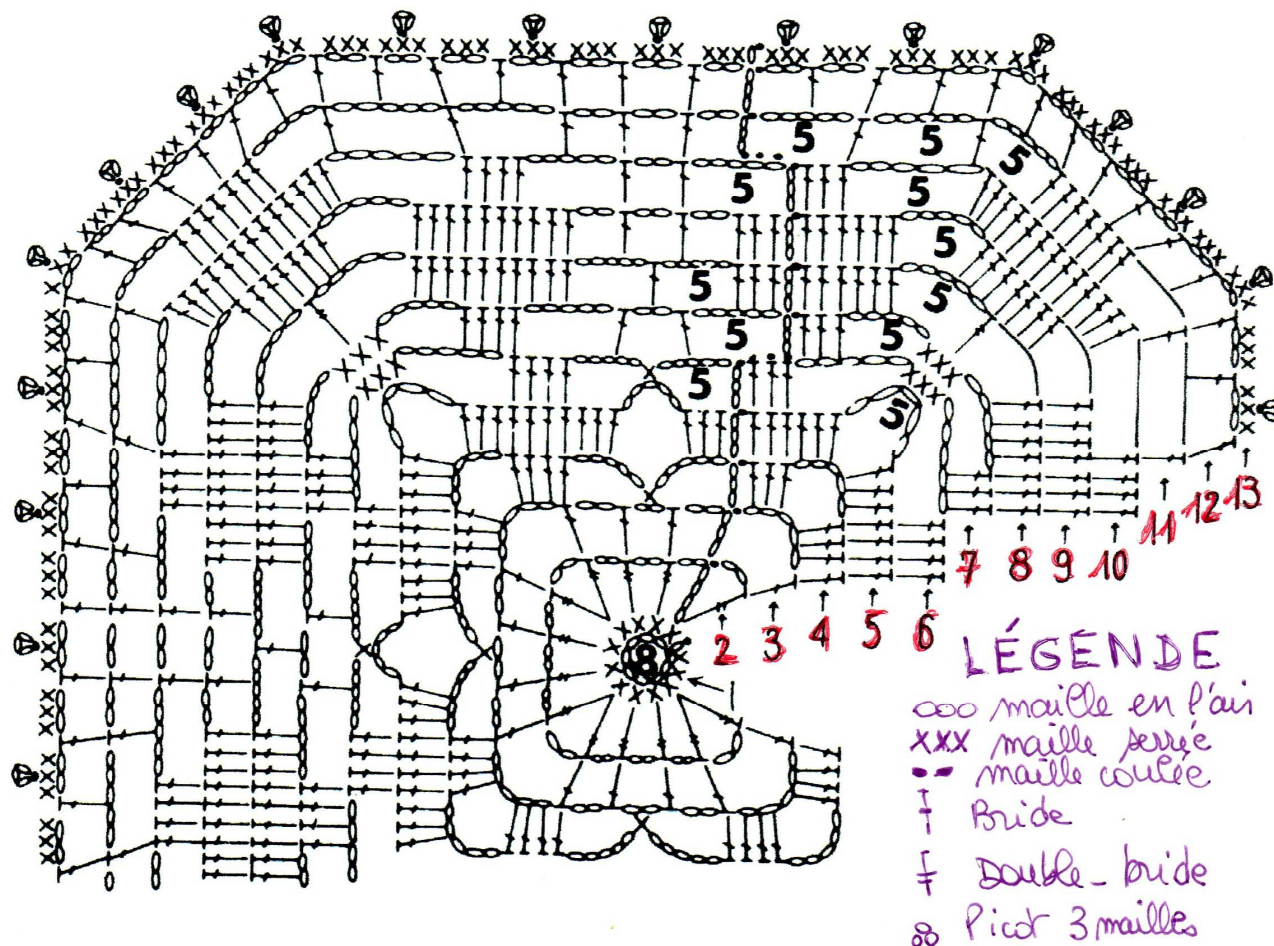 5 5 5
5 5
5
5 5
5 5
5 5
8
2 3 4 5 6 7 8 9 10 11 12 13
LÉGENDE
maille en l'air
XXX maille serrée
maille coulée
Bride
Double-bride
Picot 3 mailles